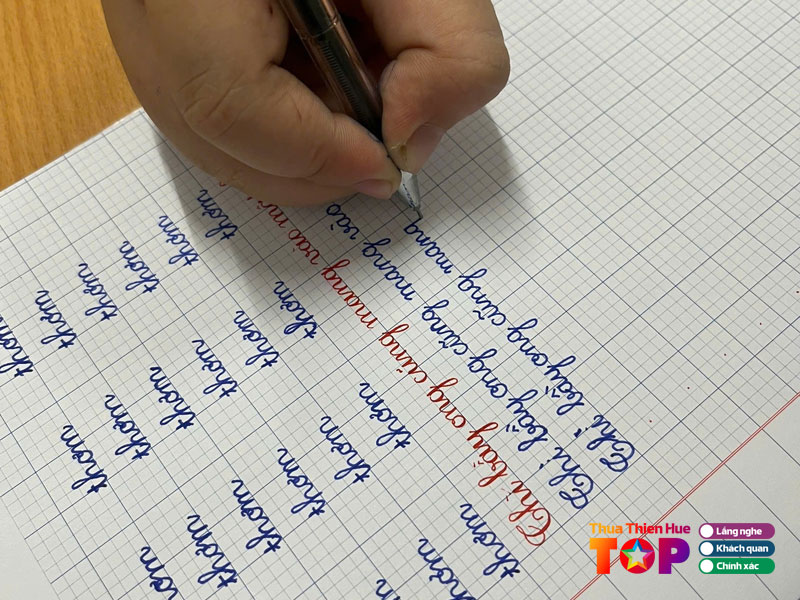 thơm thơm
thơm thơm thơm
thơm thơm thơm
thơm thơm thơm
thơm thơm thơm
thơm thơm thơm thơm
Thì bầy ong cũng mang vào
Thì bầy ong cũng mang vào
Thì bầy ong cũng mang
Thua Thien Hue
TOP
Lắng nghe
Khách quan
Chính xác